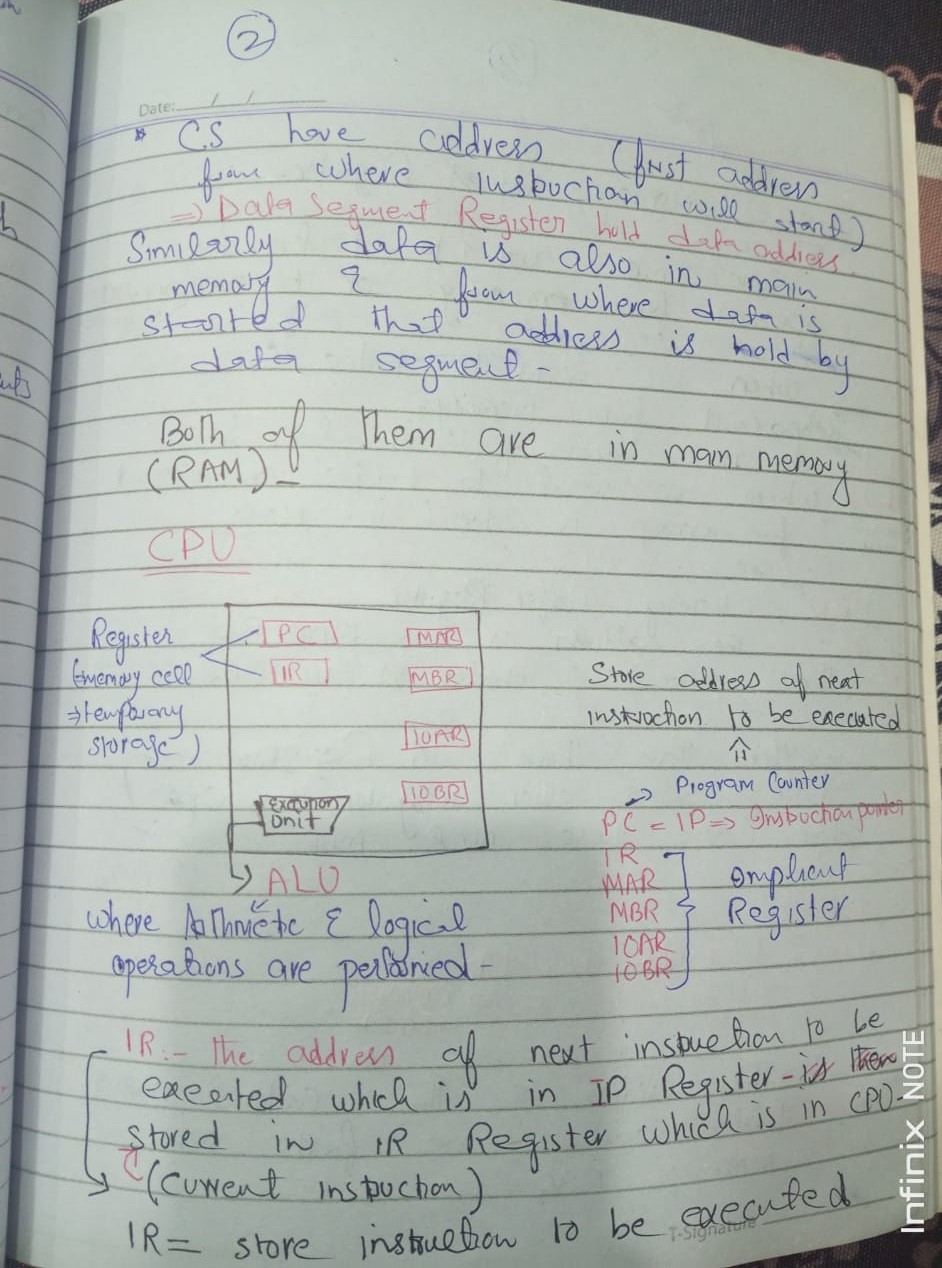 2
Date: / /
* CS have address (first address
from where instruction will start)
⇒ Data Segment Register hold data address
Similarly data is also in main
memory & from where data is
started that address is hold by
data segment -
Both of them are in main memory
(RAM) -
CPU
Register
(memory cell
⇒ temporary
storage)
PC
IR
MAR
MBR
IOAR
IOBR
Execution
Unit
ALU
where Arithmetic & logical
operations are performed -
Store address of next
instruction to be executed
⇑
→ Program Counter
PC = IP ⇒ Instruction pointer
IR
MAR
MBR
IOAR
IOBR
Implicit
Register
IR :- the address of next instruction to be
executed which is in IP Register - is then
stored in IR Register which is in CPU -
(Current instruction)
IR = store instruction to be executed
T-Signature
Infinix NOTE